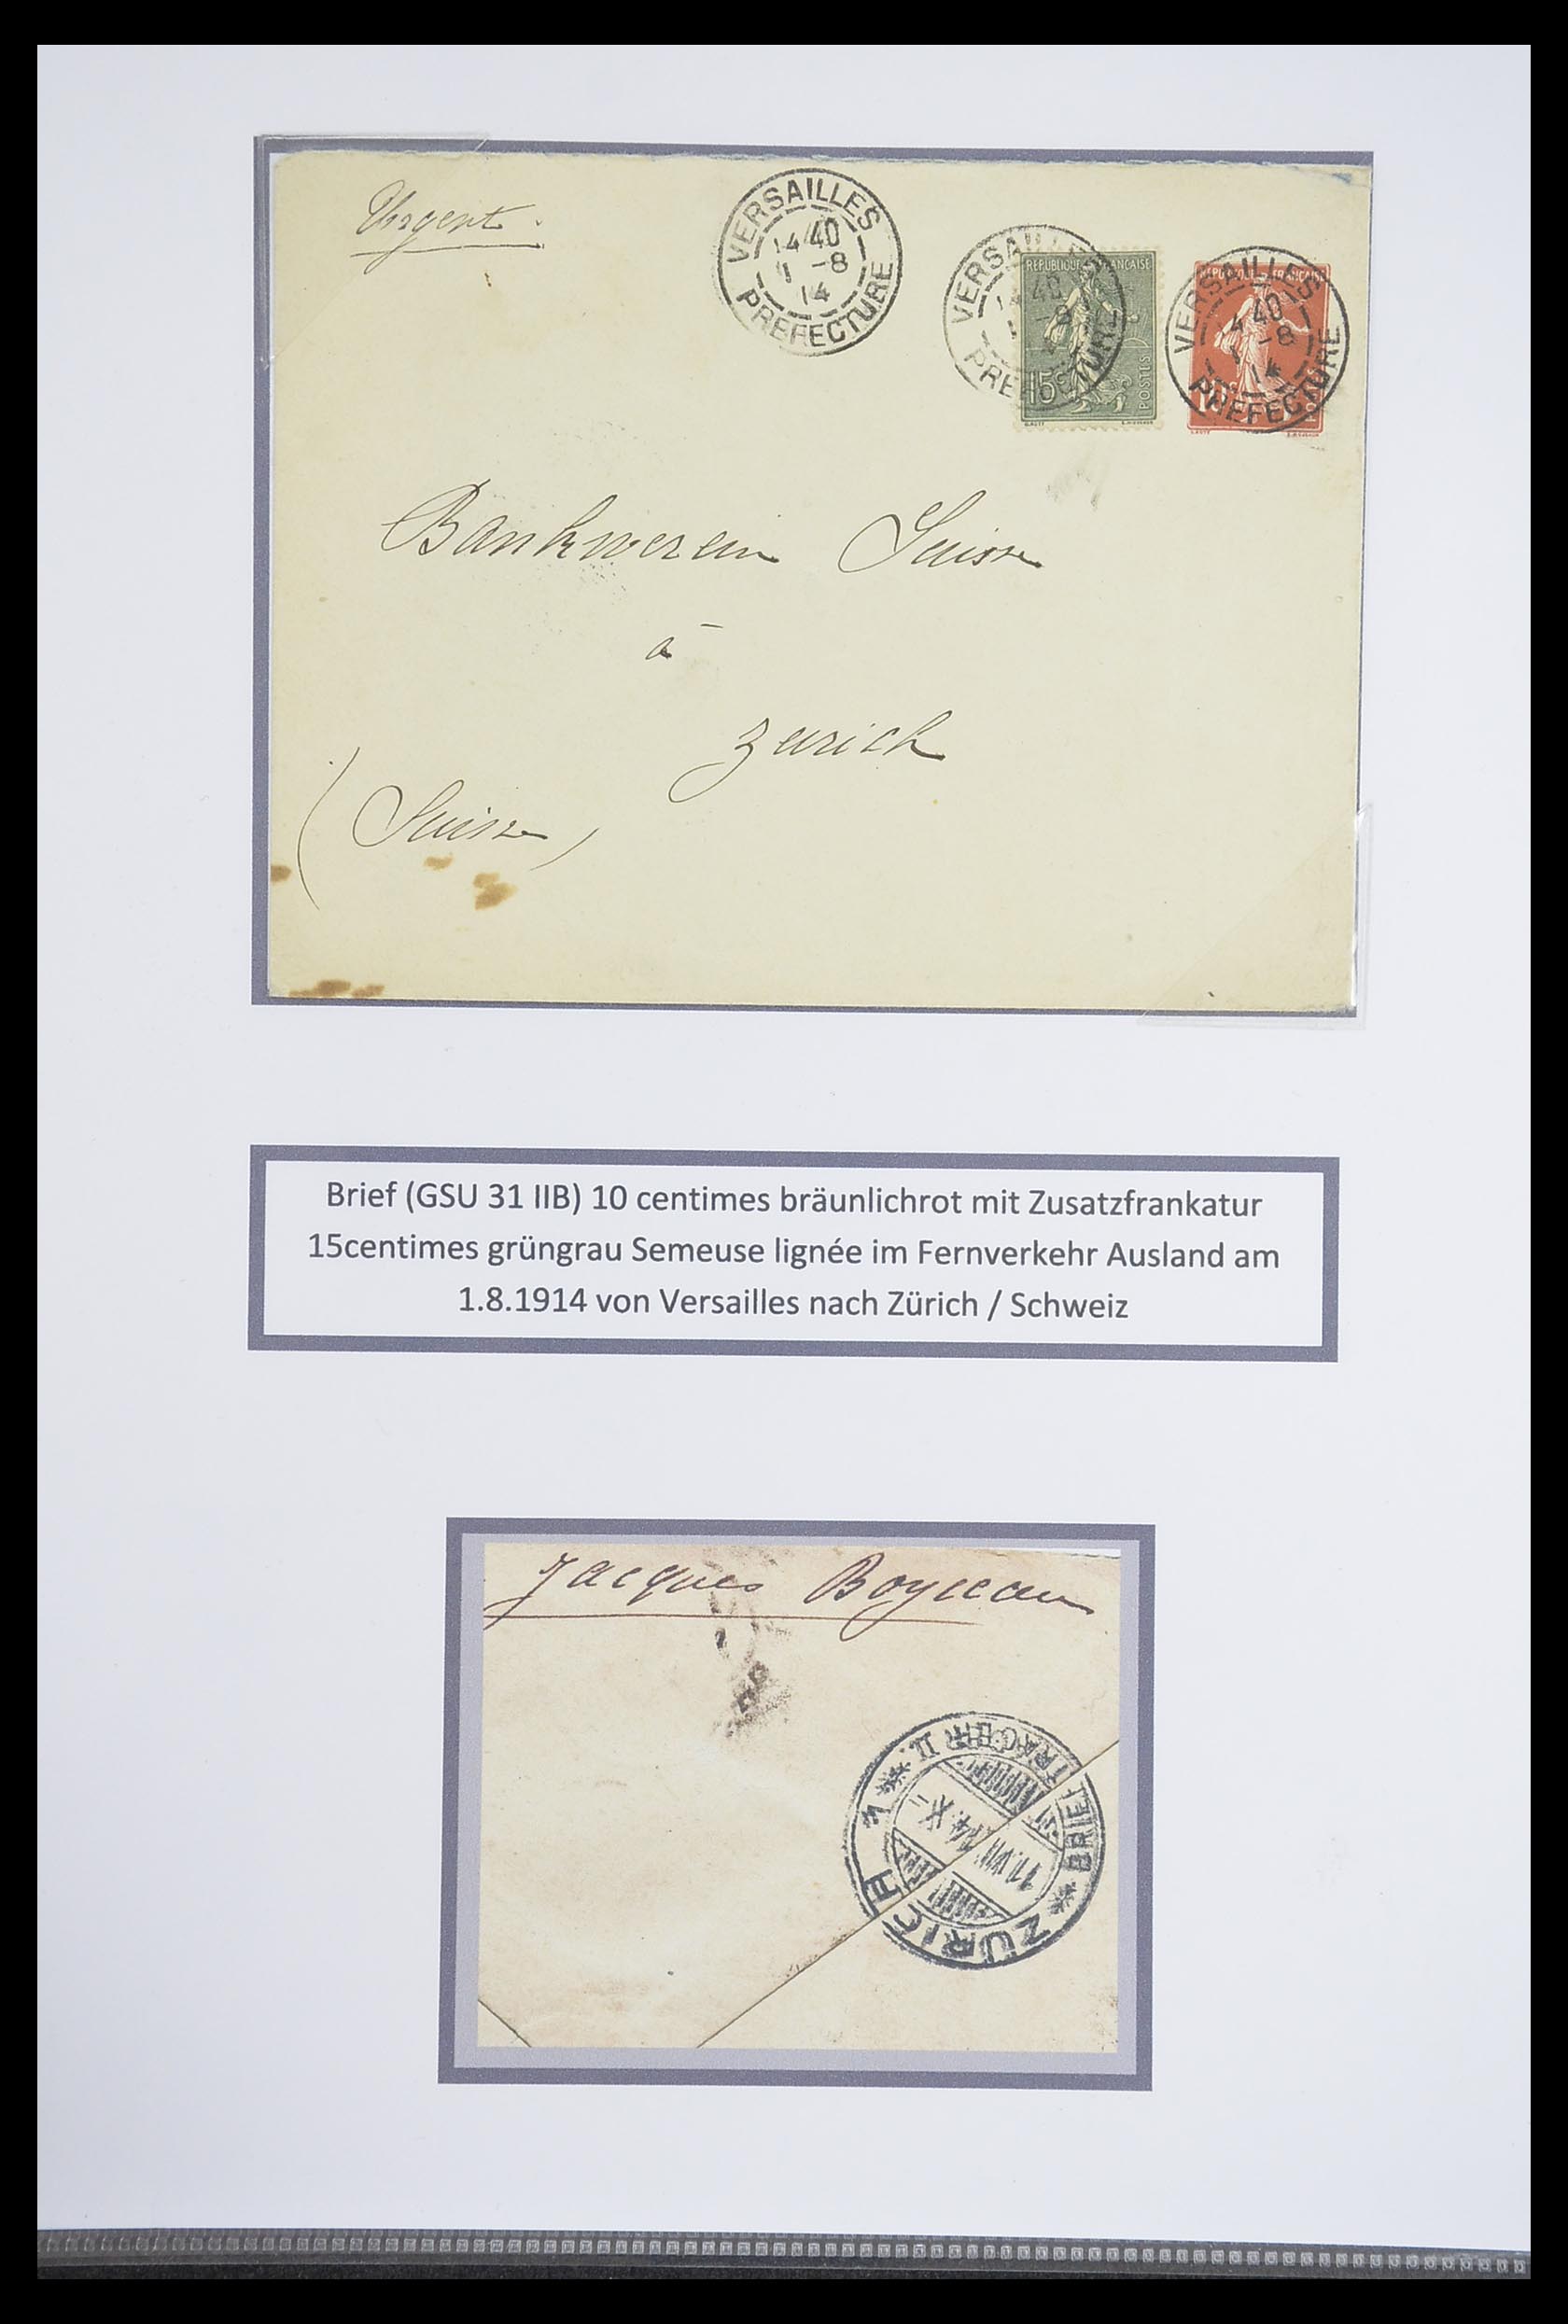 Urgent.
VERSAILLES
14 40
1 -8
14
PREFECTURE
VERSAILLES
40
-8
PREFECTURE
REPUBLIQUE FRANÇAISE
15c
POSTES
VERSAILLES
40
1 -8
14
PREFECTURE
10
Bankverein Suisse
à
Zurich
(Suisse)
Brief (GSU 31 IIB) 10 centimes bräunlichrot mit Zusatzfrankatur
15centimes grüngrau Semeuse lignée im Fernverkehr Ausland am
1.8.1914 von Versailles nach Zürich / Schweiz
Jacques
ZÜRICH 1
11.VIII 14.X-
BRIEFTRÄGER II.